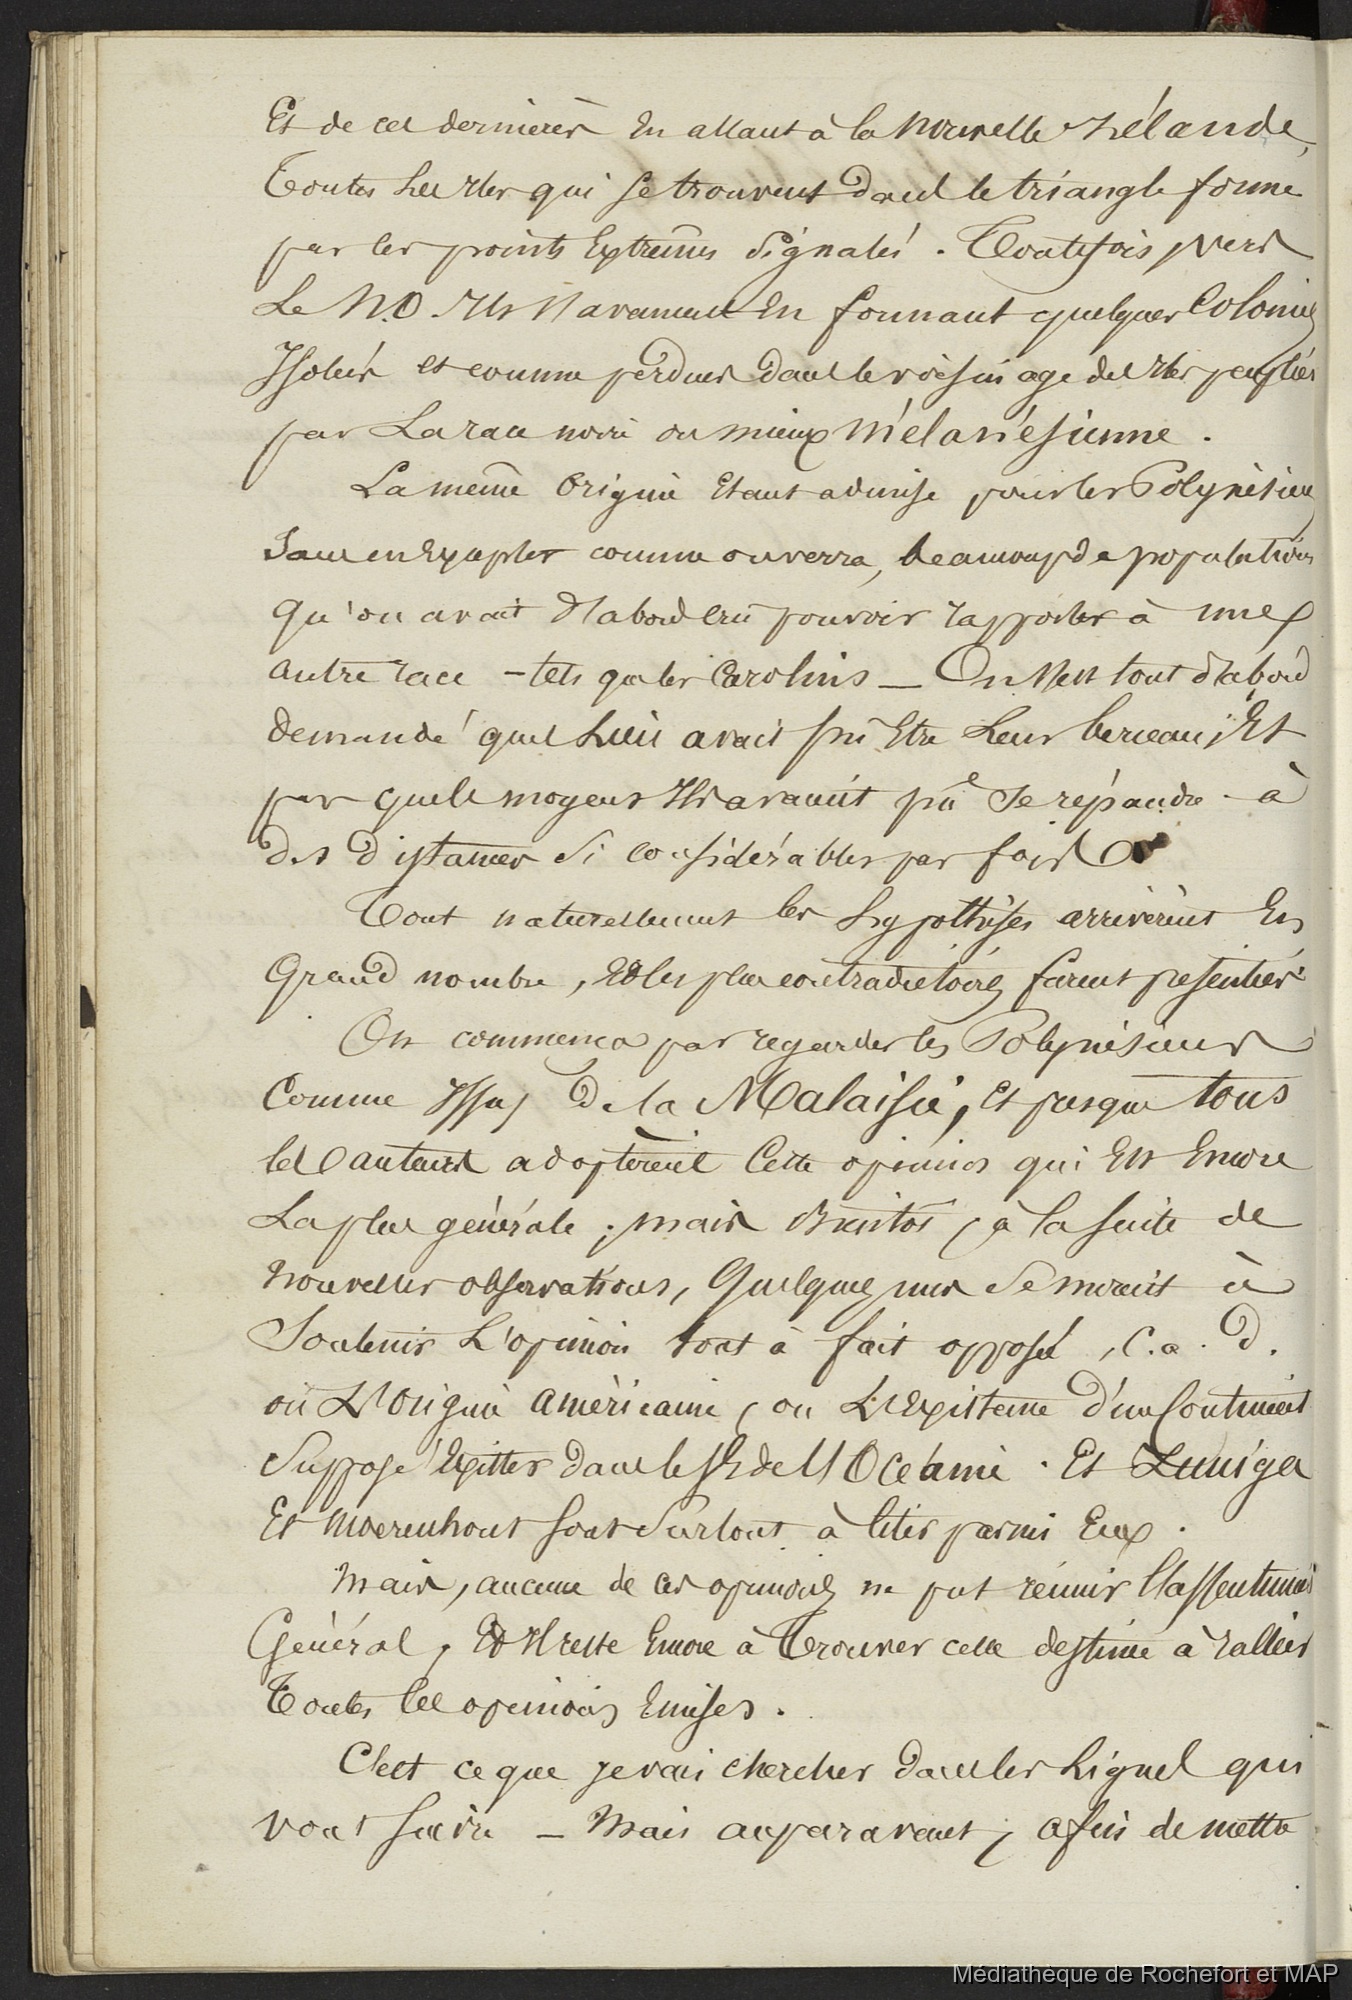 Et de ces dernières en allant à la Nouvelle Zélande,
Toutes les Iles qui se trouvent dans le triangle formé
par les points Extrêmes Signalés. Toutefois vers
Le N.O Ils s'avancent En formant quelques Colonies
Isolées et comme perdues dans le voisinage des Iles peuplées
par La race noire ou mieux Mélanésienne.
La même Origine étant admise pour les Polynésiens
Sans en Excepter comme on verra, beaucoup de populations
Qu'on avait d'abord crû pouvoir rapporter à une
autre race - tels que les Carolins _ On s'est tout d'abord
demandé quel Lieu avait pû Etre Leur berceau, Et
par quels moyens Ils avaient pû se répandre à
des distances si considérables par fois
Tout naturellement les hypothèses arrivèrent En
Grand nombre, Et les plus contradictoires furent présentées
On commença par regarder les Polynésiens
Comme Issus de la Malaisie, Et presque tous
les auteurs adoptèrent Cette opinion qui Est Encore
La plus générale ; mais Bientôt, à la suite de
nouvelles observations, Quelques uns se mirent à
Soutenir L'opinion tout à fait opposée, C. a. d.
où L'Origine américaine, ou L'Existence d'un Continent
Supposé Exister dans le Sd de l'Océanie. Et Zuniga
Et Moerenhout sont Surtout à citer parmi Eux.
Mais, aucune de ces opinions ne put réunir l'assentiment
Général, Et Il reste Encore à Trouver celle destinée à rallier
Toutes les opinions Emises.
C'est ce que je vais chercher dans les Lignes qui
vont suivre _ Mais auparavant, afin de mettre
Médiathèque de Rochefort et MAP